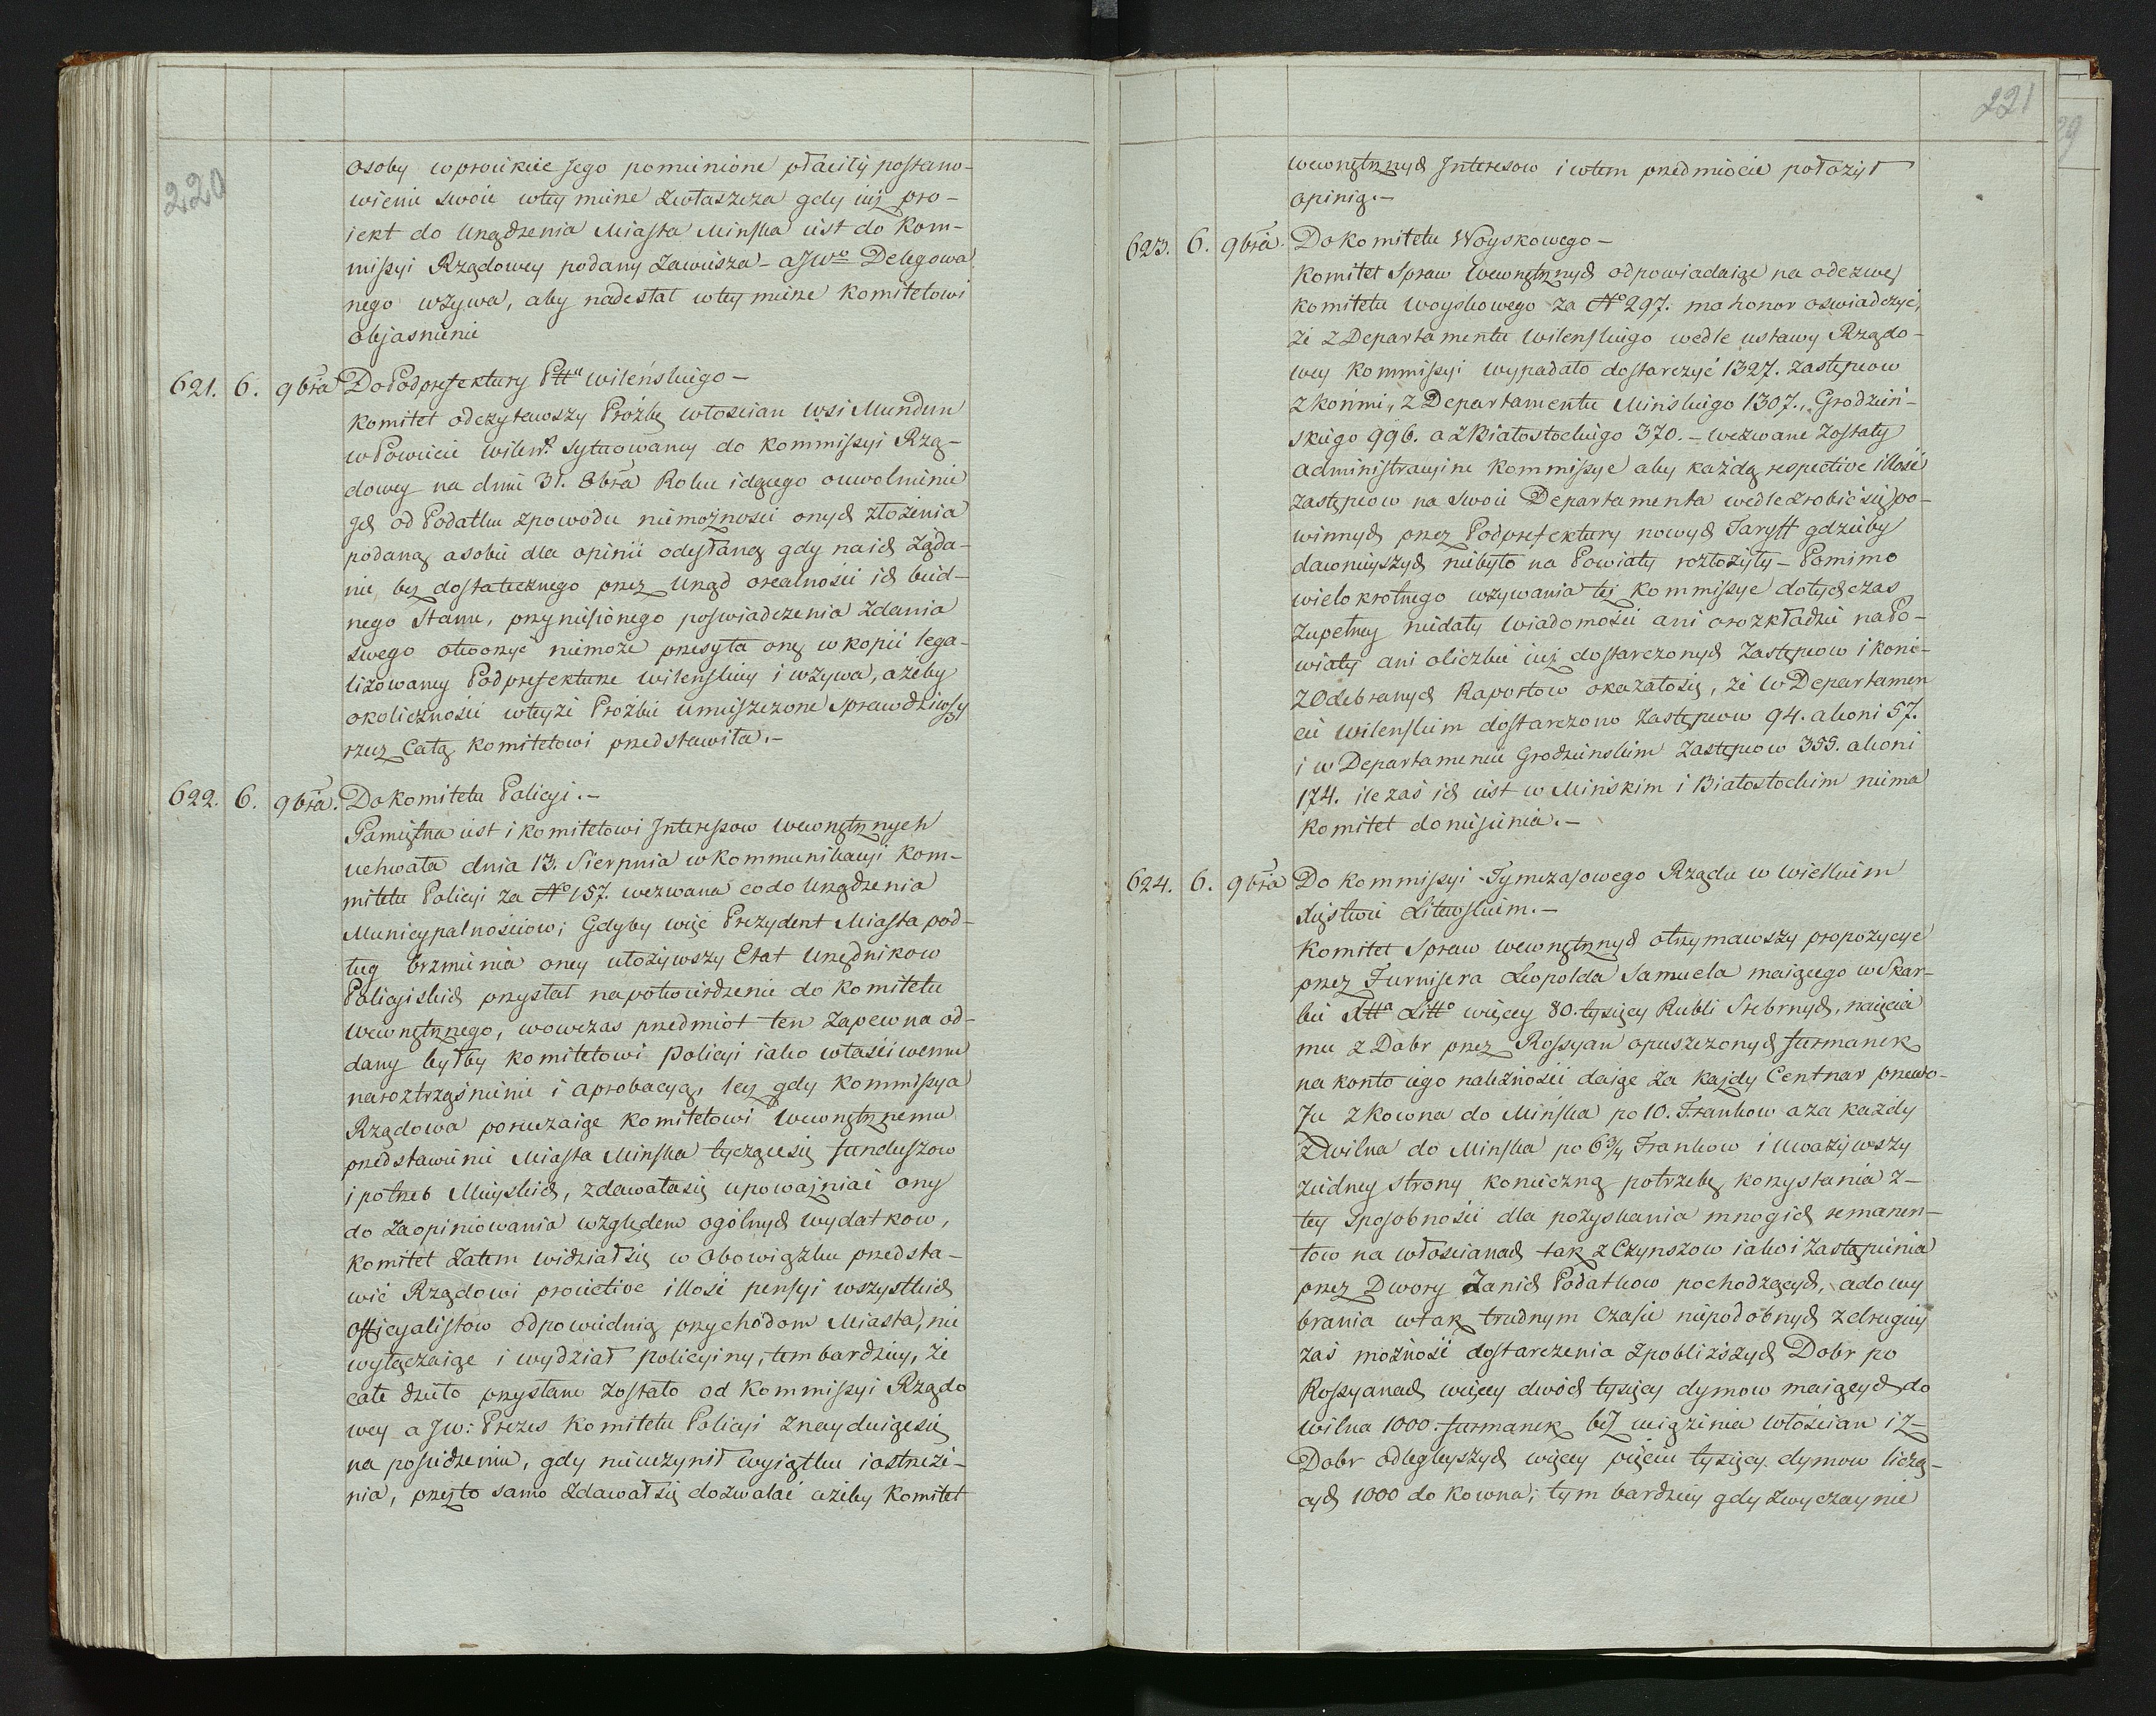 220
osoby w proiekcie Jego pomienione płacili postano-
wienie swoie w tey mierze zwłaszcza gdy iuż pro-
iekt do Urządzenia Miasta Minska iest do Kom-
missyi Rządowey podany zawiesza - a JWo Delegowa
nego wzywa, aby nadesłał w tey mierze Komitetowi
objasnienie
621. 6. 9bra Do Podprefektury Pttu wileńskiego -
Komitet odczytawszy Prożbę włoscian wsi Mundun
w Powiecie wileń. sytuowaney do Kommissyi Rzą-
dowey na dniu 31. 8bra Roku idącego o uwolnienie
Jch od Podatku z powodu niemożnosci onych złożenia
podaną a sobie dla opinii odesłaną gdy na ich żąda-
nie, bez dostatecznego przez Urząd o realności ich bied-
nego Stanu, przyniesionego poswiadczenia zdania
swego otworzyć niemoże przesyła onę w kopii lega-
lizowaney Podprefekturze wileńskiey i wzywa, ażeby
okoliczności w teyże Prożbie umieszczone Sprawdziwszy
rzecz całą Komitetowi przedstawiła.-
622. 6. 9bra. Do Komitetu Policyi.-
Pamiętna iest i Komitetowi Interessow Wewnętrznych
uchwała dnia 13. Sierpnia w Kommunikacyi Kom-
mitetu Policyi za No 157. wezwana co do Urządzenia
Municypalnościow; Gdyby więc Prezydent Miasta pod-
ług brzmienia oney ułożywszy Etat Urzędnikow
Policyiskich przysłał na potwierdzenie do Komitetu
Wewnętrznego, wowczas przedmiot ten zapewna od-
dany byłby Komitetowi Policyi iako właściwemu
na roztrząśnienie i aprobacyą, lecz gdy Kommissya
Rządowa poruczaiąc Komitetowi Wewnętrznemu
przedstawienie Miasta Minska tyczące się funduszow
i potrzeb Mieyskich, zdawała się upoważniać ony
do zaopiniowania względem ogólnych wydatkow,
Komitet zatem widział się w Obowiązku przedsta-
wić Rządowi proiective illość pensyi wszystkich
Officyalistow odpowiednią przychodom Miasta, nie
wyłączaiąc i wydział policyiny, tem bardziey, że
całe dzieło przysłane zostało od Kommissyi Rządo
wey a JW: Prezes Komitetu Policyi znayduiąc się
na posiedzeniu, gdy nieuczynił wyiątku i ostrzeże-
nia, przez to samo zdawał się dozwalać ażeby Komitet
221
wewnętrznych Interesow i w tem przedmiocie położył
opinią.-
623. 6. 9bra. Do Komitetu Woyskowego -
Komitet Spraw Wewnętrznych odpowiadaiąc na odezwę
Komitetu Woyskowego za No 297. ma honor oswiadczyć,
że z Departamentu Wilenskiego wedle ustawy Rządo-
wey Kommissyi wypadało dostarczyć 1327. zastępcow
z końmi, z Departamentu Minskiego 1307., Grodzień-
skiego 996. a z Białostockiego 370. - wezwane zostały
administracyine Kommissye aby każda respective illość
zastępcow na swoie Departamenta wedle zrobić się po-
winnych przez Podprefektury nowych Taryff gdzieby
dawnieyszych niebyło na Powiaty rozłożyły - Pomimo
wielokrotnego wzywania też Kommissye dotychczas
zupełney niedały wiadomości ani o rozkładzie na Po-
wiaty ani o liczbie iuż dostarczonych Zastępcow i koni -
z Odebranych Raportow okazało się, że w Departamen
cie Wilenskim dostarczono zastępcow 94. a koni 57.
i w Departamencie Grodzienskim Zastępcow 355. a koni
174. ile zaś ich iest w Minskim i Białostockim niema
Komitet doniesienia.-
624. 6. 9bra Do Kommissyi Tymczasowego Rządu w Wielkiem
Xięstwie Litewskiem.-
Komitet Spraw wewnętrznych otrzymawszy propozycye
przez Furnisera Leopolda Samuela maiącego w Skar-
bie Xtta Litto więcey 80. tysięcy Rubli Srebrnych, naięcia
mu z Dobr przez Rossyan opuszczonych furmanek
na konto iego należności daiąc za każdy Centnar przewo-
zu z Kowna do Mińska po 10. Frankow a za każdy
z Wilna do Minska po 6 3/4 Frankow i Uważywszy
z iedney strony konieczną potrzebę korzystania z-
tey sposobności dla pozyskania mnogich remanen-
tow na włościanach tak z Czynszow iako i zastąpienia
przez Dwory za nich Podatkow pochodzących, a do wy
brania w tak trudnym czasie niepodobnych z drugiey
zaś możność dostarczenia z pobliższych Dobr po
Rossyanach więcey dwóch tysięcy dymow maiących do
Wilna 1000. furmanek bez uciążenia włóscian i z
Dobr odlegleyszych więcey pięciu tysięcy dymow liczą-
cych 1000 do Kowna; tym bardziey gdy zwyczaynie